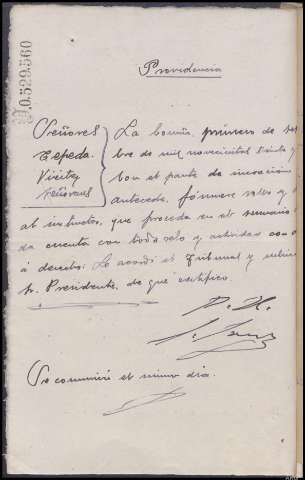 0.529.560
Providencia
Señores
Cepeda
Señorans
La Coruña, primero de
bre de mil novecientos treinta y
con el parte de incoación
antecede, fórmese rollo y
al instructor, que proceda en el sumario
da cuenta con todo celo y actividad con
á derecho: Lo acordó el Tribunal y
Sr. Presidente, de que certifico.
el mismo día.